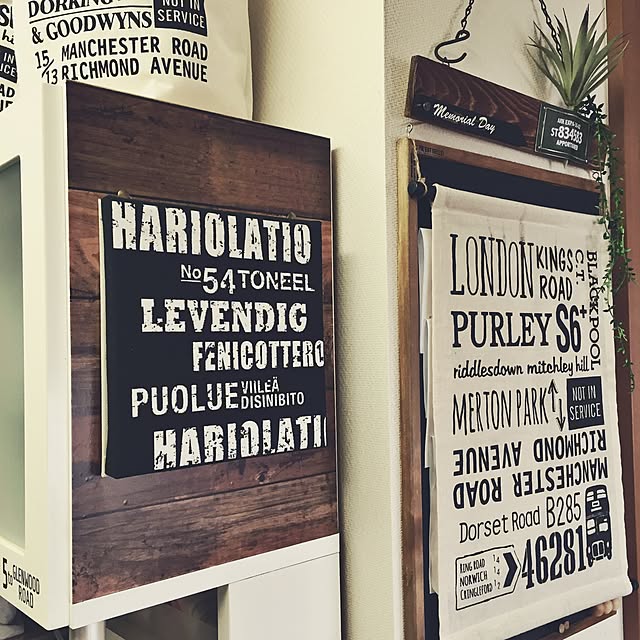 DORKING
& GOODWYNS
NOT IN
SERVICE
15/13 MANCHESTER ROAD
RICHMOND AVENUE
HARIOLATIO
No 54 TONEEL
LEVENDIG
FENICOTTERO
PUOLUE VIILEÄ
DISINIBITO
HARIOLATI
5to GLENWOOD
ROAD
Memorial Day
ST834583
LONDON KINGS
ROAD
CT
BLACKPOOL
PURLEY S6+
riddlesdown mitchley hill
MERTON PARK
NOT IN
SERVICE
RICHMOND AVENUE
MANCHESTER ROAD
Dorset Road B285
RING ROAD 1/4
NORWICH 1/4
CRINGLEFORD 1/2
46281